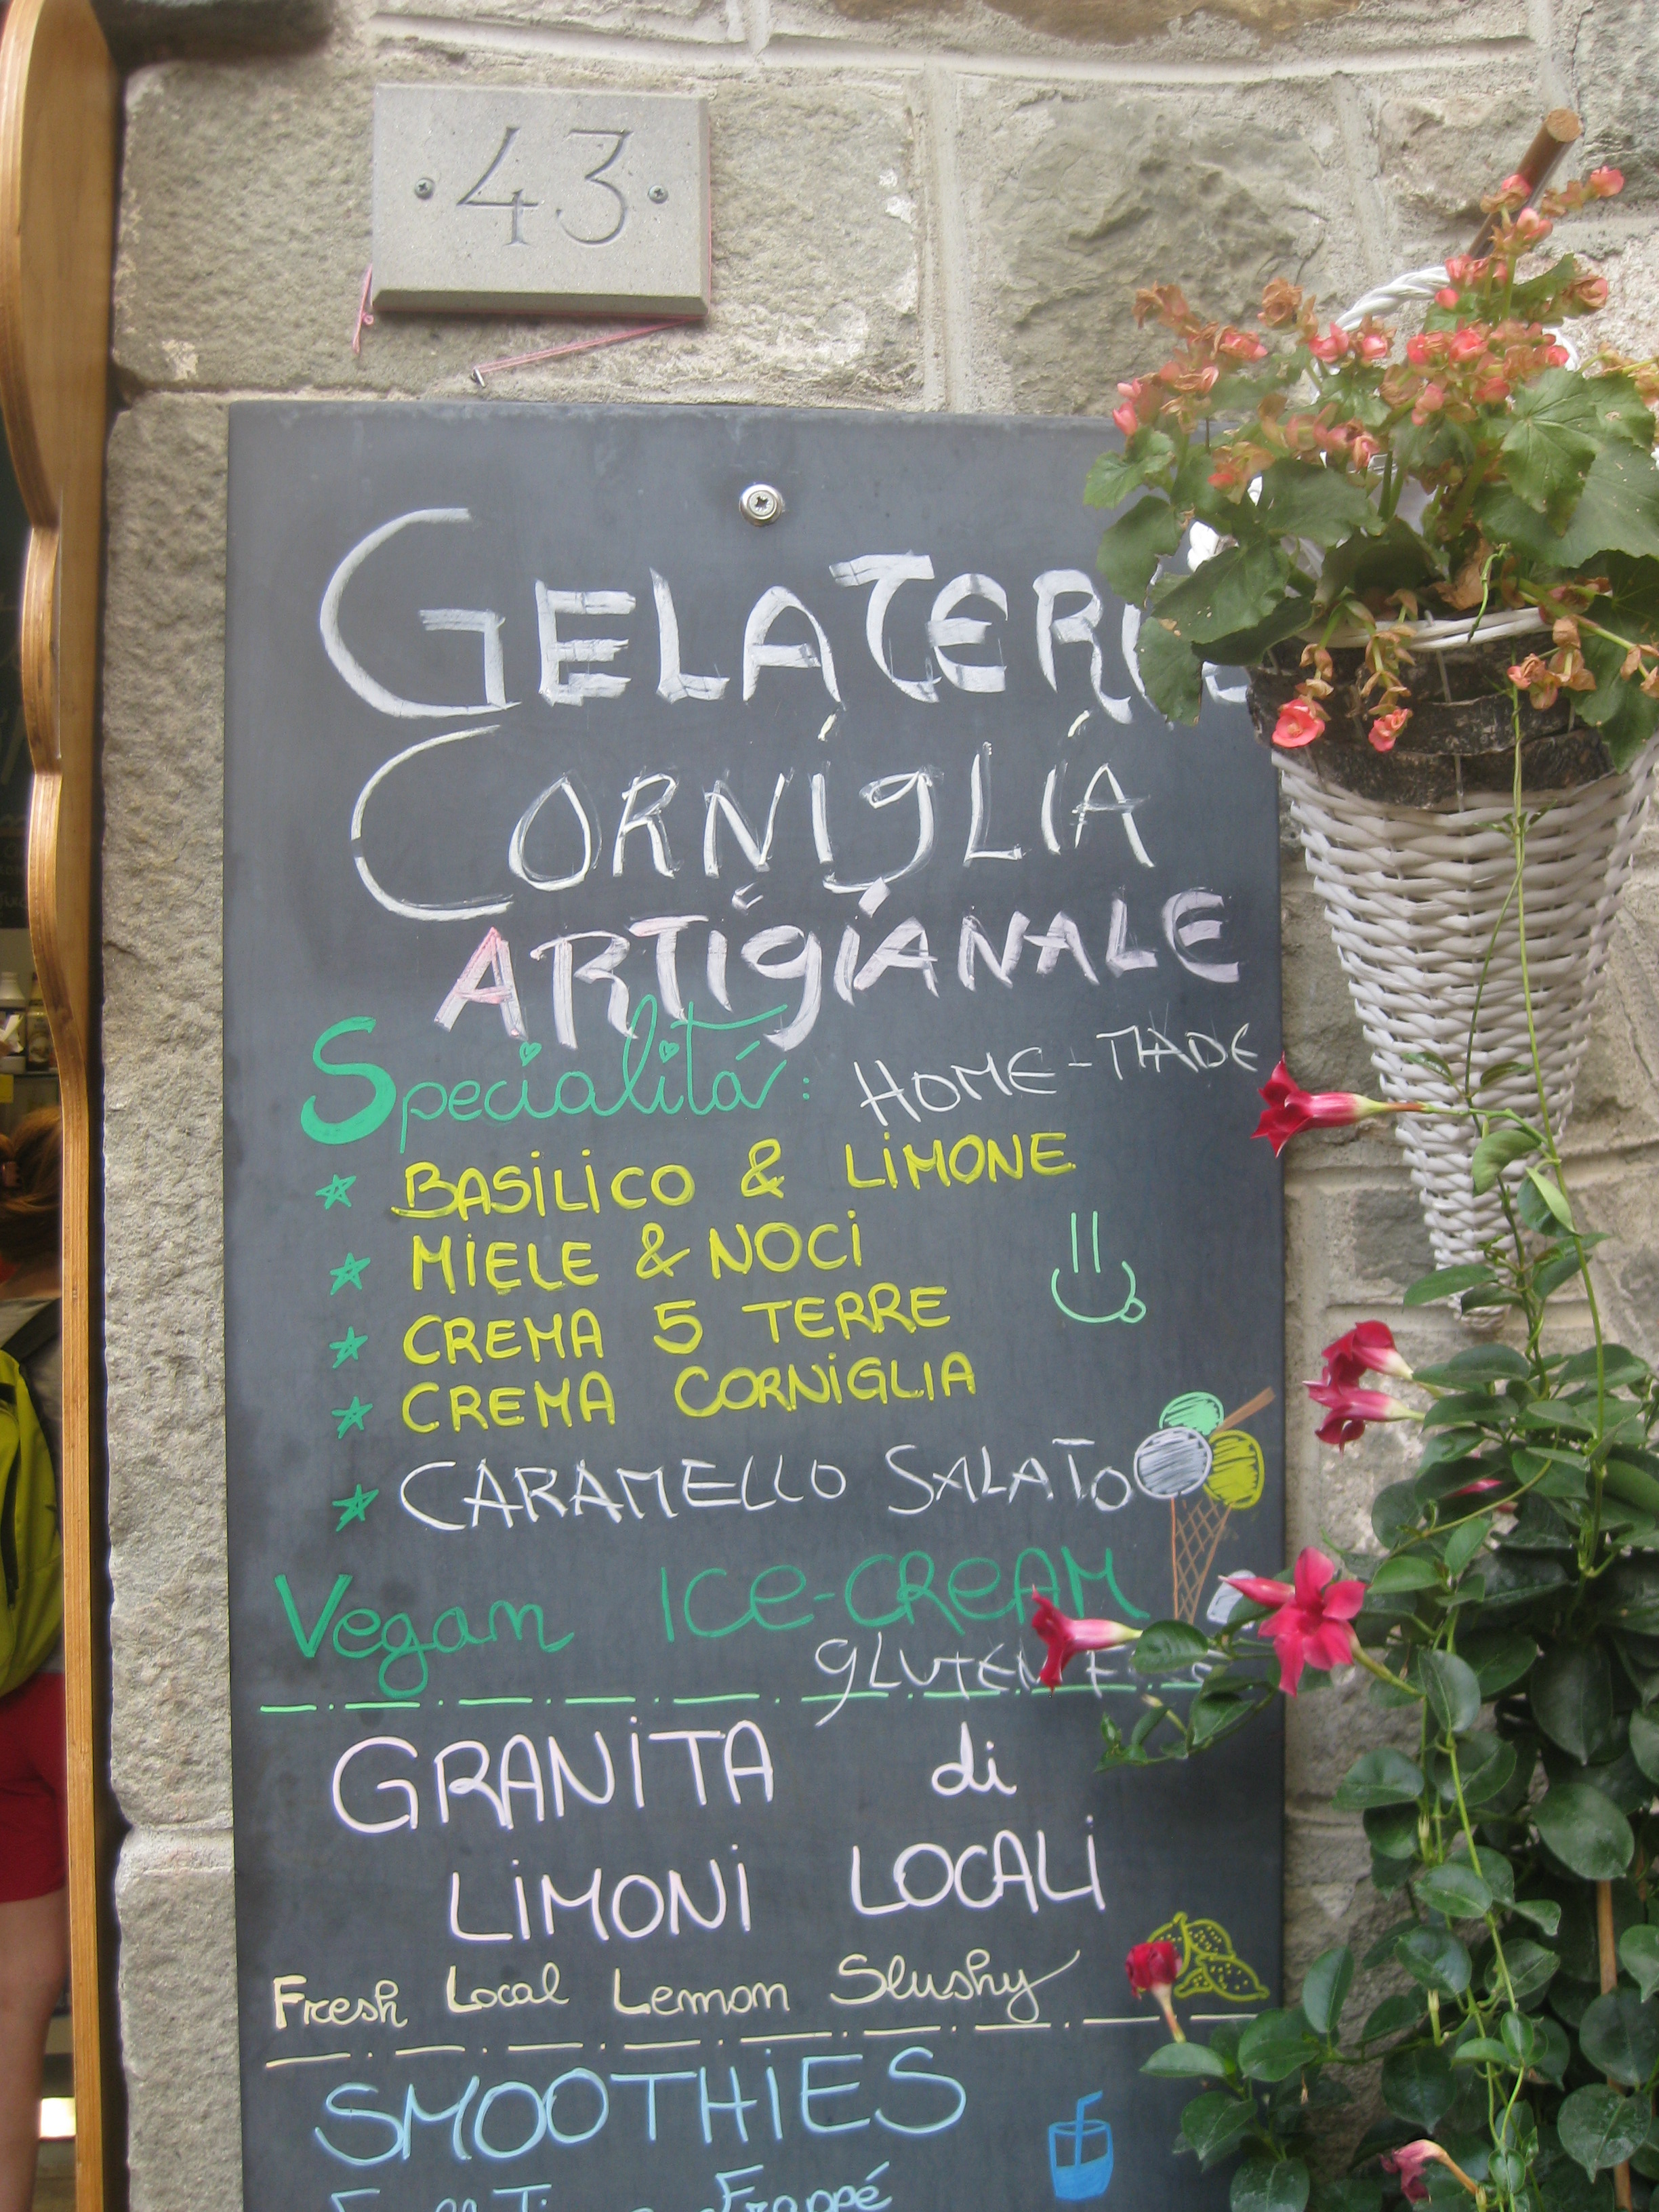 43
GELATERIA
CORNIGLIA
ARTIGIANALE
Specialitá: HOME-MADE
BASILICO & LIMONE
MIELE & NOCI
CREMA 5 TERRE
CREMA CORNIGLIA
CARAMELLO SALATO
Vegan ICE-CREAM
GLUTEN FREE
GRANITA di
LIMONI LOCALI
Fresh Local Lemon Slushy
SMOOTHIES
Frappé